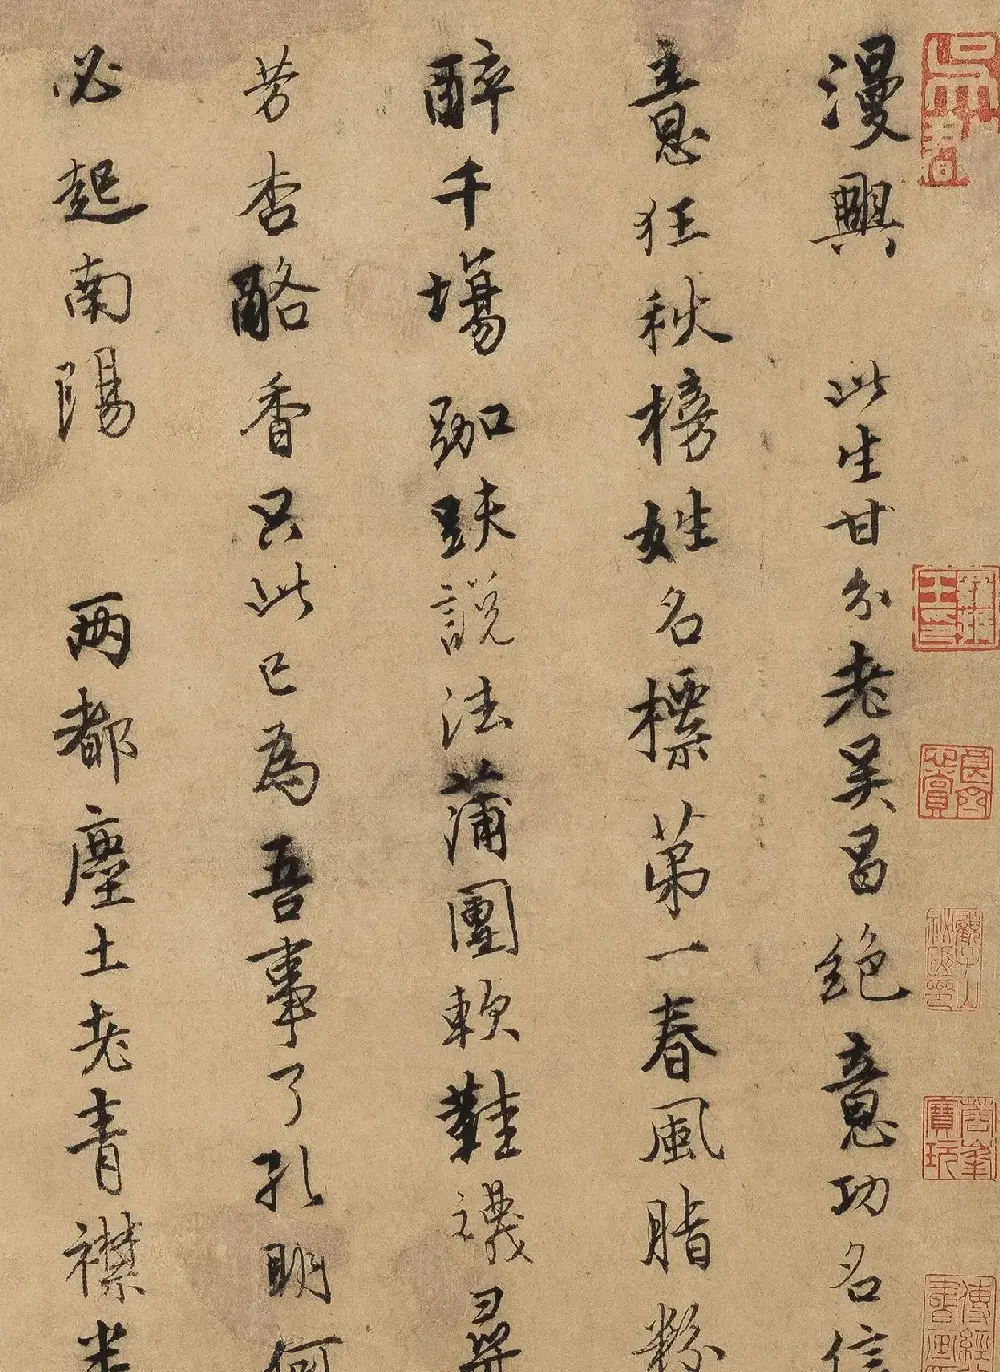 漫興 此生甘分老吳昌絕意功名信
意狂秋榜姓名標第一春風脂粉
醉千塲跏趺說法蒲團軟鞋襪尋
芳杏酪香只此已為吾事了孔明何
必起南陽 兩都塵土老青襟